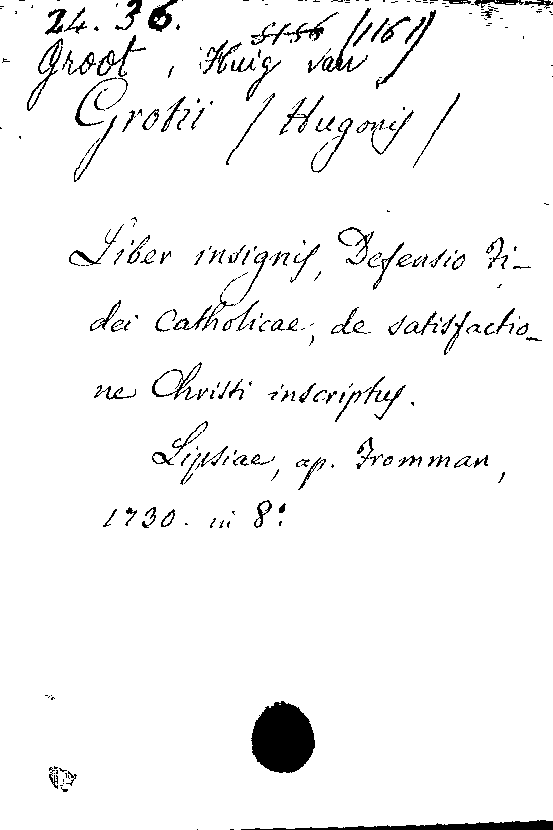 24. 36.
5156 (1161)
Groot, Huig van
Grotii / Hugonis /
Liber insignis, Defensio Fi-
dei Catholicae, de satisfactio-
ne Christi inscriptus.
Lipsiae, ap. Fromman,
1730. in 8: